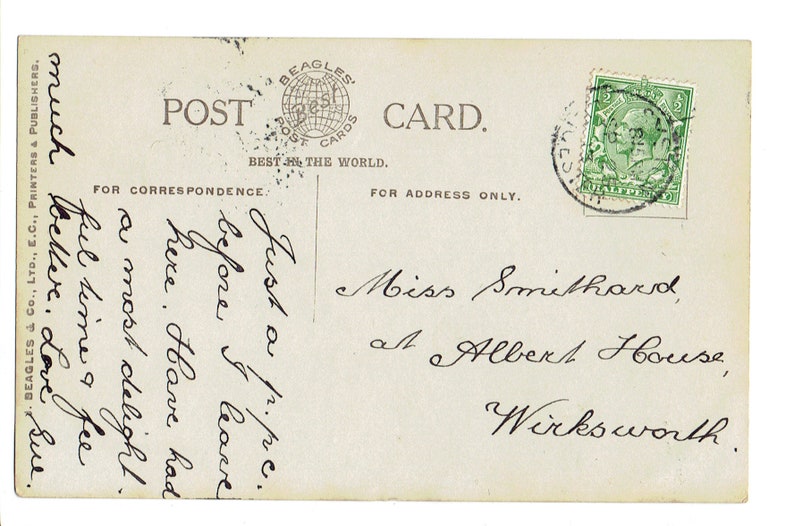 BEAGLES'
Best
POST CARDS
POST CARD.
BEST IN THE WORLD.
FOR CORRESPONDENCE.
FOR ADDRESS ONLY.
J. BEAGLES & CO., LTD., E.C., PRINTERS & PUBLISHERS.
Just a p.pc.
before I leave
here. Have had
a most delight-
ful time & fee
much better. Love Sue.
Miss Smithard,
at Albert House,
Wirksworth.
½ ½
HALFPENNY